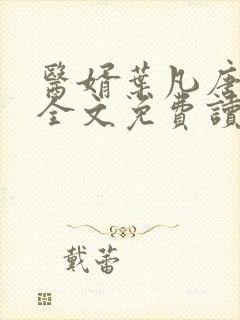 醫婿葉凡唐
全文免費讀
戴蕾